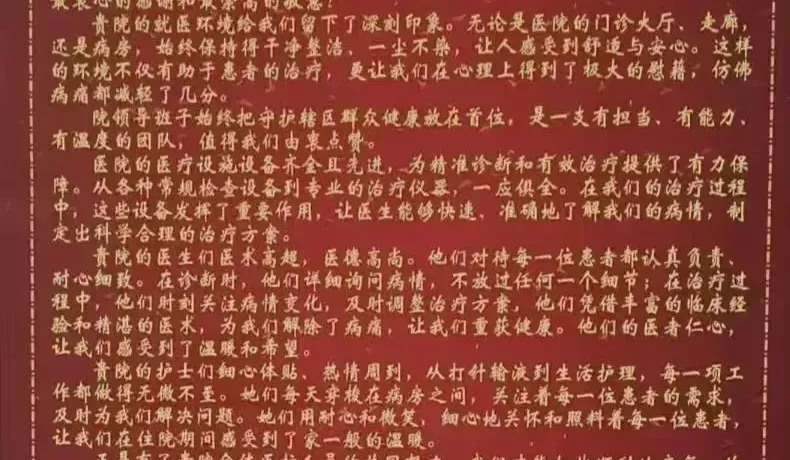 最衷心的感谢和最崇高的敬意!
贵院的就医环境给我们留下了深刻印象。无论是医院的门诊大厅、走廊,
还是病房,始终保持得干净整洁、一尘不染,让人感受到舒适与安心。这样
的环境不仅有助于患者的治疗,更让我们在心理上得到了极大的慰藉,仿佛
病痛都减轻了几分。
院领导班子始终把守护辖区群众健康放在首位,是一支有担当、有能力、
有温度的团队,值得我们由衷点赞。
医院的医疗设施设备齐全且先进,为精准诊断和有效治疗提供了有力保
障。从各种常规检查设备到专业的治疗仪器,一应俱全。在我们的治疗过程
中,这些设备发挥了重要作用,让医生能够快速、准确地了解我们的病情,制
定出科学合理的治疗方案。
贵院的医生们医术高超,医德高尚。他们对待每一位患者都认真负责、
耐心细致。在诊断时,他们详细询问病情,不放过任何一个细节;在治疗过
程中,他们时刻关注病情变化,及时调整治疗方案,他们凭借丰富的临床经
验和精湛的医术,为我们解除了病痛,让我们重获健康。他们的医者仁心,
让我们感受到了温暖和希望。
贵院的护士们细心体贴、热情周到,从打针输液到生活护理,每一项工
作都做得无微不至。她们每天穿梭在病房之间,关注着每一位患者的需求,
及时为我们解决问题。她们用耐心和微笑,细心地关怀和照料着每一位患者,
让我们在住院期间感受到了家一般的温暖。